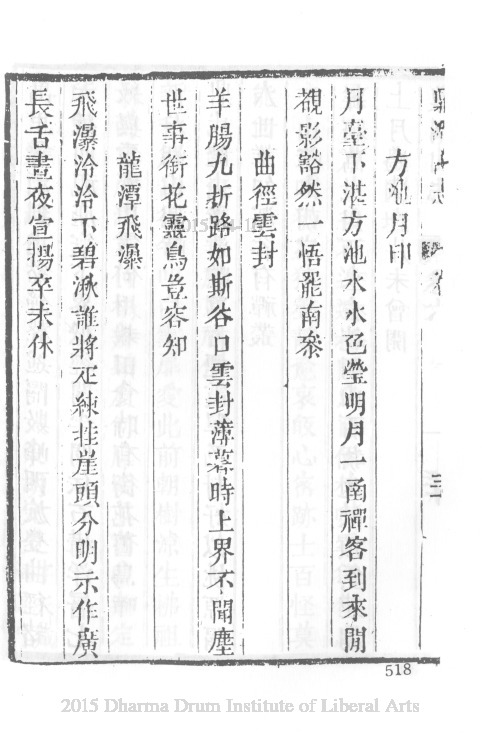 方池月印
月臺下湛方池水水色瑩明月一函禪客到來閒
觀影豁然一悟罷南叅
曲徑雲封
羊腸九折路如斯谷口雲封薄暮時上界不聞塵
世事銜花靈鳥豈容知
龍潭飛瀑
飛瀑泠泠下碧湫誰將疋練挂崖頭分明示作廣
長舌晝夜宣揚卒未休
518
2015 Dharma Drum Institute of Liberal Arts